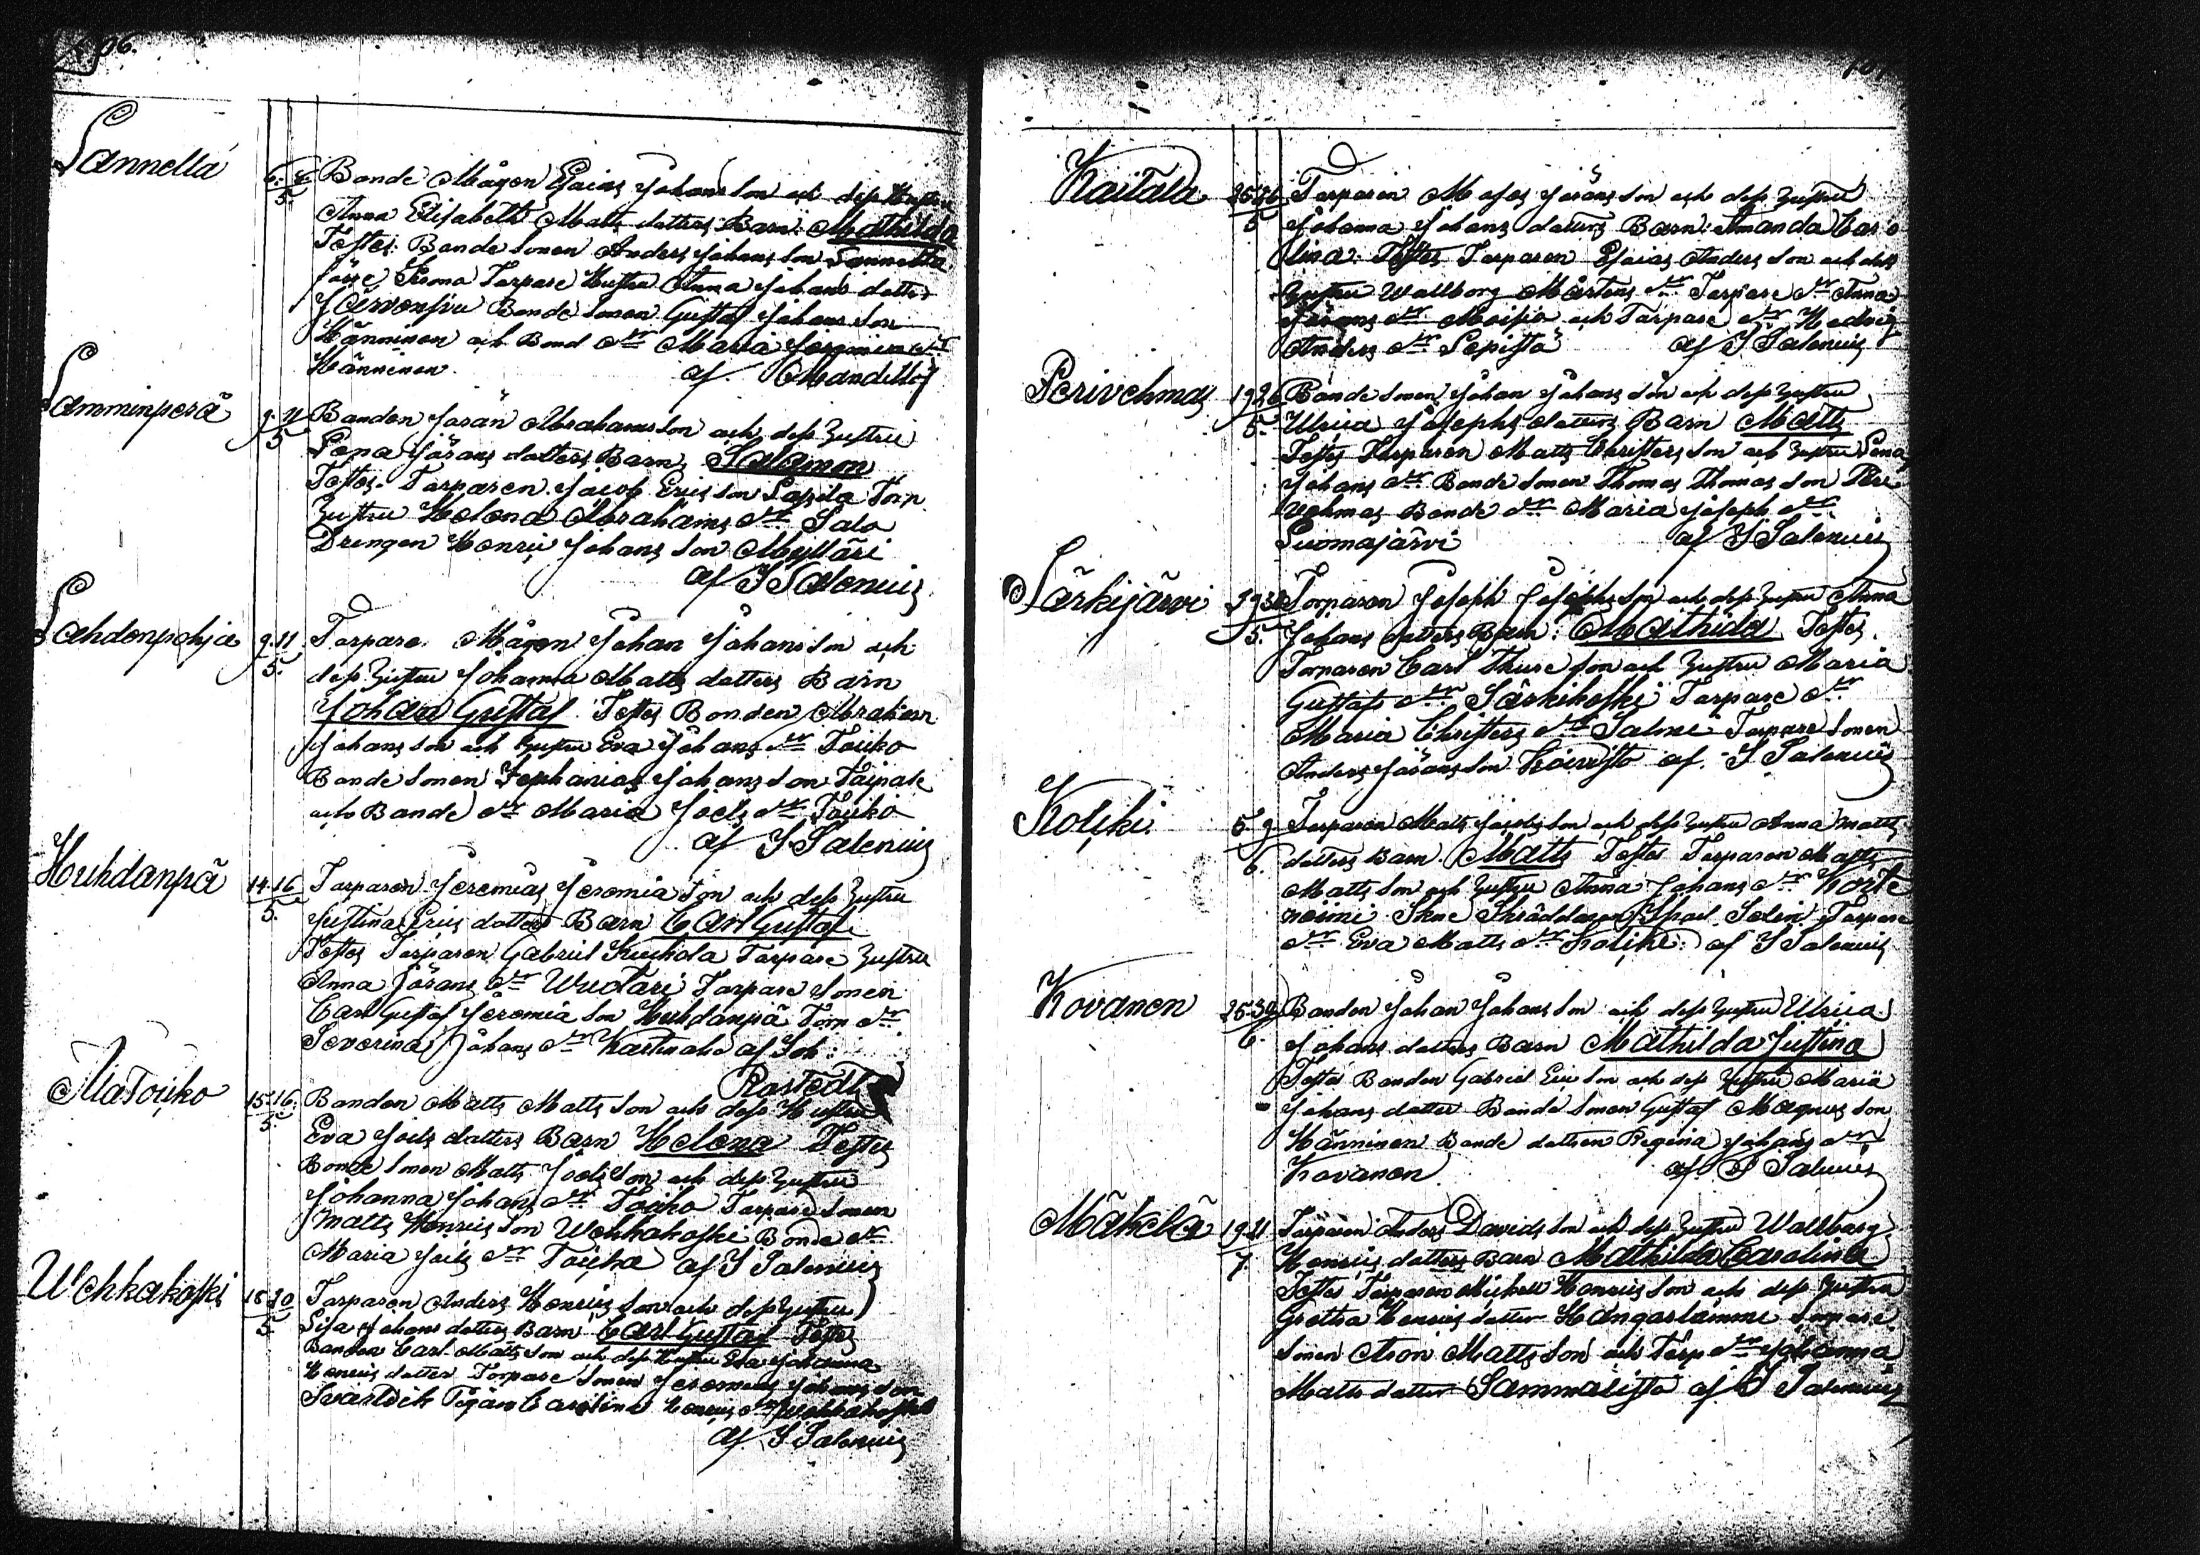 106.
Sannella
6. 8. Bonde Mågen Esaias Johans Son och dess Hustru
5. Anna Elisabeth Matts dotters Barn: Mathilda
Testes: Bonde Sonen Anders Johans Son Sannella
Torpare Hustru Anna Johans dotter
Bonde Sonen Gustaf Johans Son
Hänninen och Bond dtr Maria
Hänninen. af
Samminperä
9. 11 Bonden Jöran Abrahams Son och dess Hustru
5 Lena Jörans dotters Barn Salamon
Testes. Torparen Jacob Erics Son Lassila Torp.
Hustru Helena Abrahams dtr Salo
Drengen Henric Johans Son Mylläri
af J Salenius
Sahdenpohja
9. 11. Torpare Mågen Johan Johans Son och
5. dess Hustru Johanna Matts dotters Barn
Johan Gustaf Testes Bonden Abraham
Johans Son och Hustru Eva Johans dtr Touko
Bonde Sonen Zephanias Johans Son Taipale
och Bonde dtr Maria Joels dtr Touko
af J. Salenius
Huhdanpä
14. 16 Torparen Jeremias Jeremia Son och dess Hustru
5. Justina Erics dotters Barn Carl Gustaf
Testes Torparen Gabriel Torpare Hustru
Anna Jörans dtr Wuotari Torpare Sonen
Carl Gustaf Jeremia Son Huhdanpä Torp dtr
Severina Johans dtr af Joh:
Rostedt
AlaTouko
15. 16. Bonden Matts Matts Son och dess Hustru
5. Eva Joels dotters Barn Helena Testes
Bonde Sonen Matts Joels Son och dess Hustru
Johanna Johans dtr Touko Torpare Sonen
Matts Henrics Son Wehkakoski Bonde dtr
Maria Joels dtr Touko af J Salenius
Wehkakoski
18. 20 Torparen Anders Henrics Son och dess Hustru
5. Lisa Johans dotters Barn Carl Gustaf Testes
Bonden Carl Matts Son och dess Hustru Eva Johanna
Henrics dotter Torpare Sonen Jeremias Johans Son
Pigan Carolina Henrics dtr Wehkakoski
af J. Salenius
Kaitala
25. 26 Torparen Moses Jörans Son och dess Hustru
5 Johanna Johans dotters Barn: Amanda Caro
lina. Testes Torparen Esaias Anders Son och dess
Hustru Wallborg Mårtens dtr Torpare dtr Anna
Jörans dtr Moisio och Torpare dtr Hedvig
Anders dtr Lepistö af J Salenius
Perivehmas
19 26 Bonde Sonen Johan Johans Son och dess Hustru
5. Ulrica Josephs dotters Barn Matts
Testes Torparen Matts Christers Son och Hustru Lena
Johans dtr Bonde Sonen Thomas Thomas Son Peri
vehmas Bonde dtr Maria Joseph dtr
Suomajärvi af J Salenius
Särkijärvi
29 30 Torparen Joseph Josephs Son och dess Hustru Anna
5. Johans dotters Barn: Mathilda Testes.
Torparen Carl Thure Son och Hustru Maria
Gustafs dtr Särkikoski Torpare dtr
Maria Christers dtr Salmi Torpare Sonen
Anders Jörans Son Koivisto af. J Salenius
Kolski
5. 9. Torparen Matts Jacobs Son och dess Hustru Anna Matts
6. dotters Barn. Matts Testes Torparen Matts
Matts Son och Hustru Anna Johans dtr Korte
noimi Skräddaren Isac Solin Torpare
dtr Eva Matts dtr af J Salenius
Kovanen
25. 30 Bonden Johan Johans Son och dess Hustru Ulrica
6. Johans dotters Barn Mathilda Justina
Testes Bonden Gabriel Eric Son och dess Hustru Maria
Johans dotter Bonde Sonen Gustaf Magnus Son
Hänninen Bonde dottren Regina Johans dtr
Kovanen. af. J Salenius
Mäkelä
19. 21 Torparen Anders Davids Son och dess Hustru Wallborg
7 Henrics dotters Barn Mathilda Carolina
Testes Torparen Michell Henrics Son och dess Hustru
Gretha Henrics dotter Hangaslamme Torpare
Sonen Aron Matts Son och Torp dtr Johanna
Matts dotter Sammalisto af. J Salenius